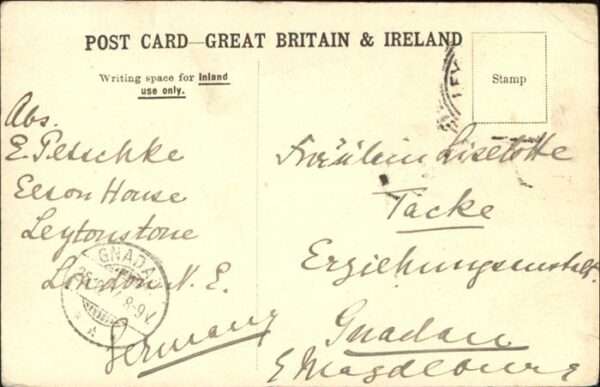 POST CARD—GREAT BRITAIN & IRELAND
Writing space for Inland
use only.
Stamp
Abs.
E. Petschke
Eeson House
Leytonstone
London N. E.
Germany
Fräulein Liselotte
Tacke
Erziehungsanstalt
Gnadau
Magdeburg
GNADAU
8-9V.